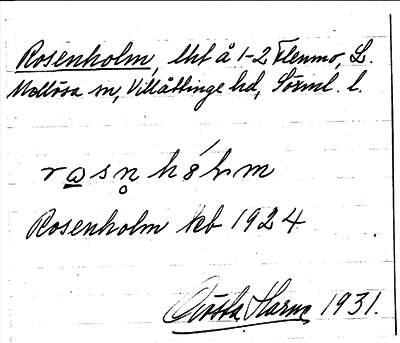 Rosenholm, lht å 1-2 Flenmo, L.
Mellösa sn, Villåttinge hd, Sörml. l.
Rosenholm kb 1924
Gösta 1931.